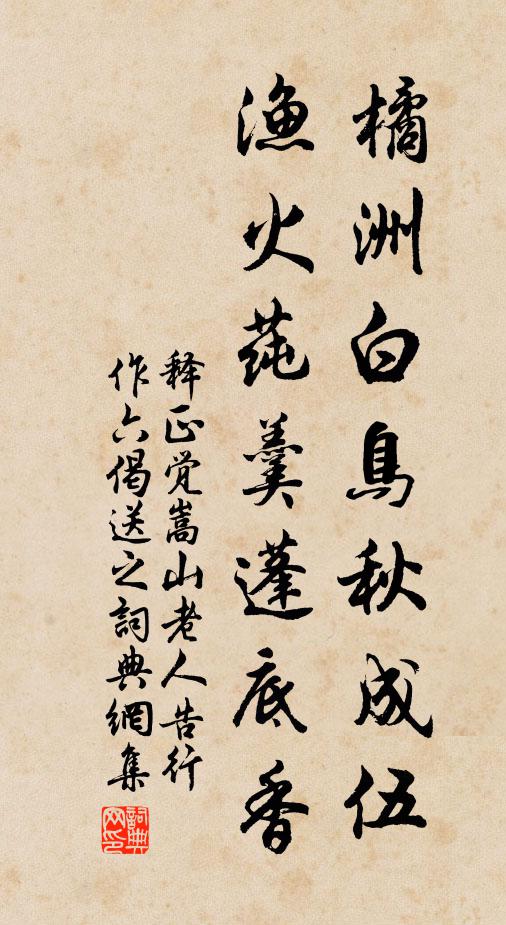 橘洲白鳥秋成伍
漁火蒓羹蓬底香
释正觉嵩山老人告行
作六偈送之詞典網集
詞典网印